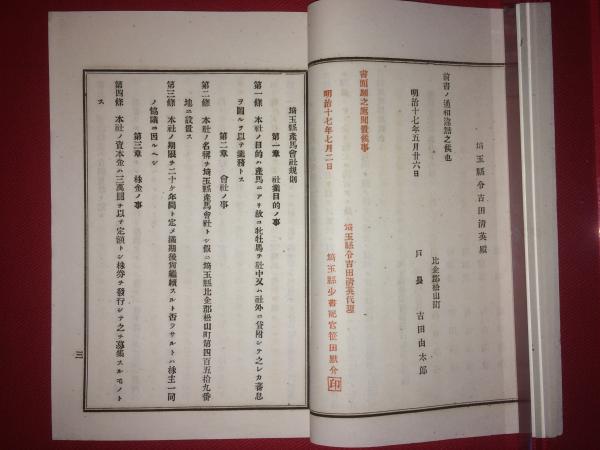 埼玉縣令吉田清英殿
比企郡松山町
戸長 吉田由太郎
前書ノ通相違無之候也
明治十七年五月廿六日
書面願之趣聞置候事
明治十七年七月二日
埼玉縣令吉田清英代理
埼玉縣少書記官笹田默介 印
埼玉縣產馬會社規則
第一章 社業目的ノ事
第一條 本社ノ目的ハ產馬ニアリ故ニ牝牡馬ヲ社中又ハ社外ニ貸附シテ之レカ蕃息
ヲ圖ルヲ以テ業務トス
第二章 會社ノ事
第二條 本社ノ名稱ヲ埼玉縣產馬會社トシ假ニ埼玉縣比企郡松山町第四百五拾九番
地ニ設置ス
第三條 本社ノ期限ヲ二十ケ年間ト定メ滿期後尙繼續スルト否ラサルトハ株主一同
ノ協議ニ因ルヘシ
第三章 株金ノ事
第四條 本社ノ資本金ハ三萬圓ヲ以テ定額トシ株券ヲ發行シテ之ヲ募集スルモノト
ス
三